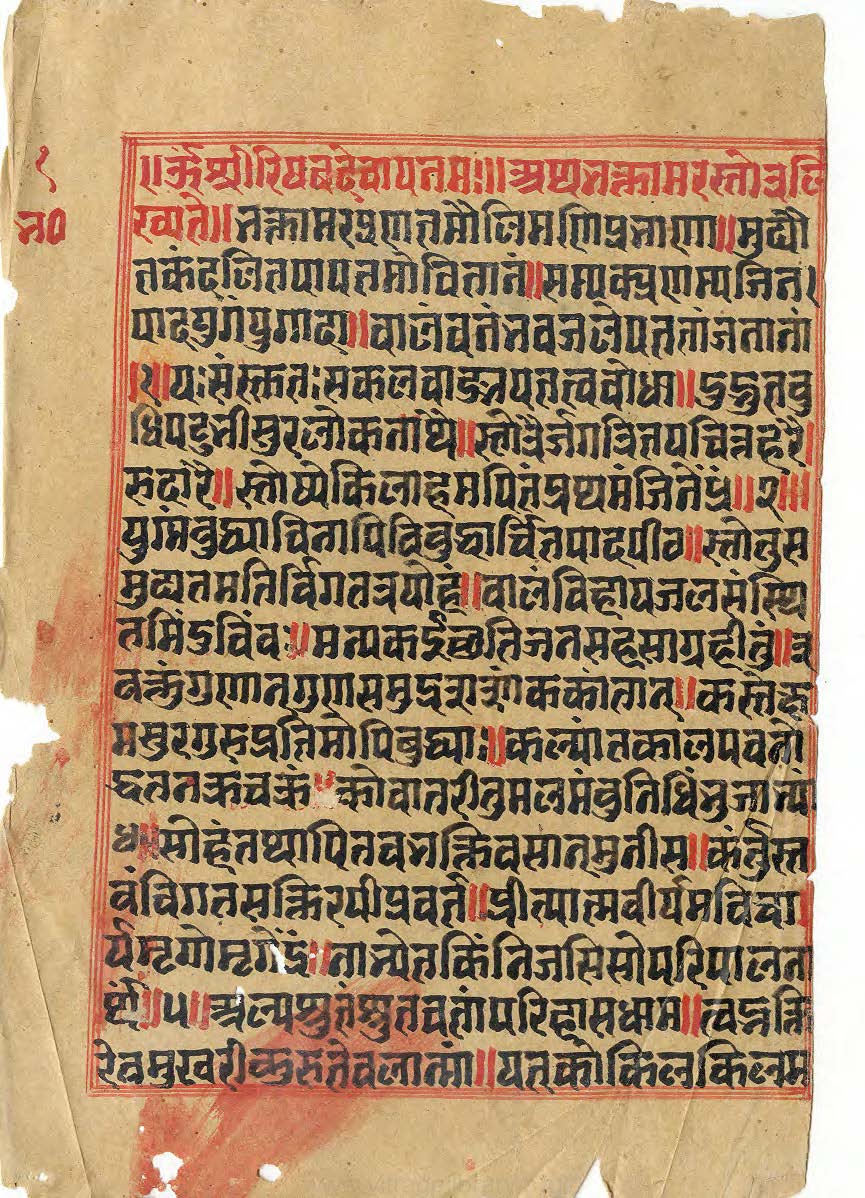 १
भ०
॥ॐश्रीरिषबदेवायनमः॥अथभक्तामरस्तोत्रलि
ख्यते॥भक्तामरप्रणतमौलिमणिप्रभाणा॥मुद्यौ
तकंदलितपापतमोवितानं॥सम्यक्प्रणम्यजिन
पादयुगंयुगादा॥वालंवनंभवजलेपततांजनानां
।१॥यःसंस्कतःसकलवाङ्मयतत्ववोधा॥दुद्भुतबु
धिपटुभीसुरलोकनाथै॥स्तोत्रैर्जगत्रितयचित्तहरै
रुदारै॥स्तोष्येकिलाहमपितंप्रथमंजिनेंद्रं॥२॥
युग्मंबुद्ध्याविनापिविबुद्धार्चितपादपीठ॥स्तोतुस
मुद्यतमतिर्विगतत्रपोहं॥वालंविहायजलसंस्थि
तमिंदुविंव॥मन्यकईछतिजनसहसाग्रहीतुं॥३
वक्तुंगुणान्गुणसमुद्रशशांककांतान्॥कस्तेक्ष
मसुरगुरुप्रतिमोपिबुद्ध्याः॥कल्पांतकालपवनो
द्धतनक्रचक्रं॥कोवातरीतुमलमंबुनिधिंभुजाभ्या
४॥सोहंतथापितवभक्तिवसान्मुनीस॥कर्तुंस्त
वंविगतसक्तिरपीप्रवर्त॥प्रीत्यात्मवीर्यमविचा
र्यमृगोमृगेंद्रं॥नाभ्येतकिंनिजसिसोपरिपालना
र्थं॥५॥अल्पश्रुतंश्रुतवतांपरिहासधाम॥त्वद्भक्ति
रेवमुखरीकुरुतेवलान्मां॥यत्कोकिलकिलम